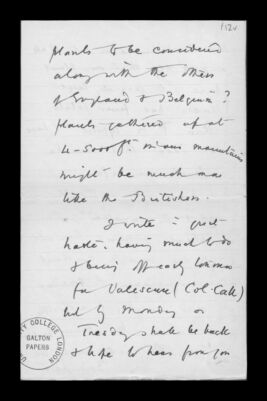 112v
plants to be considered
along with the others
of England & Belgium?
Plants gathered up at
4-5000 ft. in our mountains
might be much more
like the Britishers.
I write in great
haste, having much to do
& being off early tomorrow
for Valescure (Col. Call)
but by Monday or
Tuesday shall be back
& hope to hear from you
UNIVERSITY COLLEGE LONDON
GALTON
PAPERS